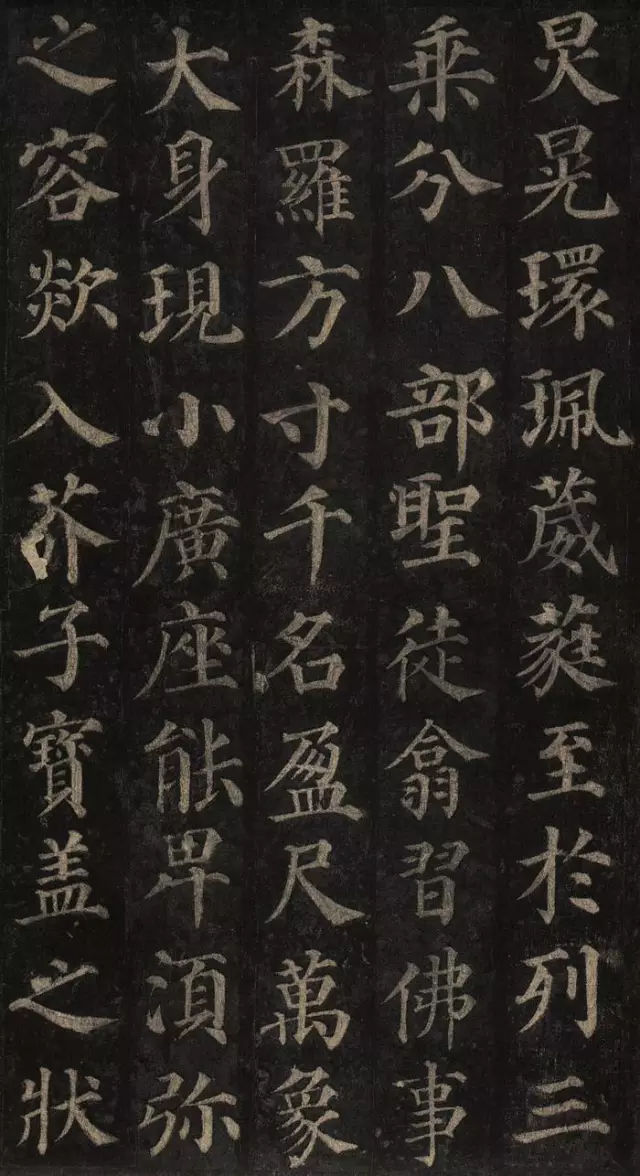 炅晃環珮葳蕤至於列三
乗分八部聖徒翕習佛事
森羅方寸千名盈尺萬象
大身現小廣座能卑湏弥
之容欻入芥子寶盖之狀